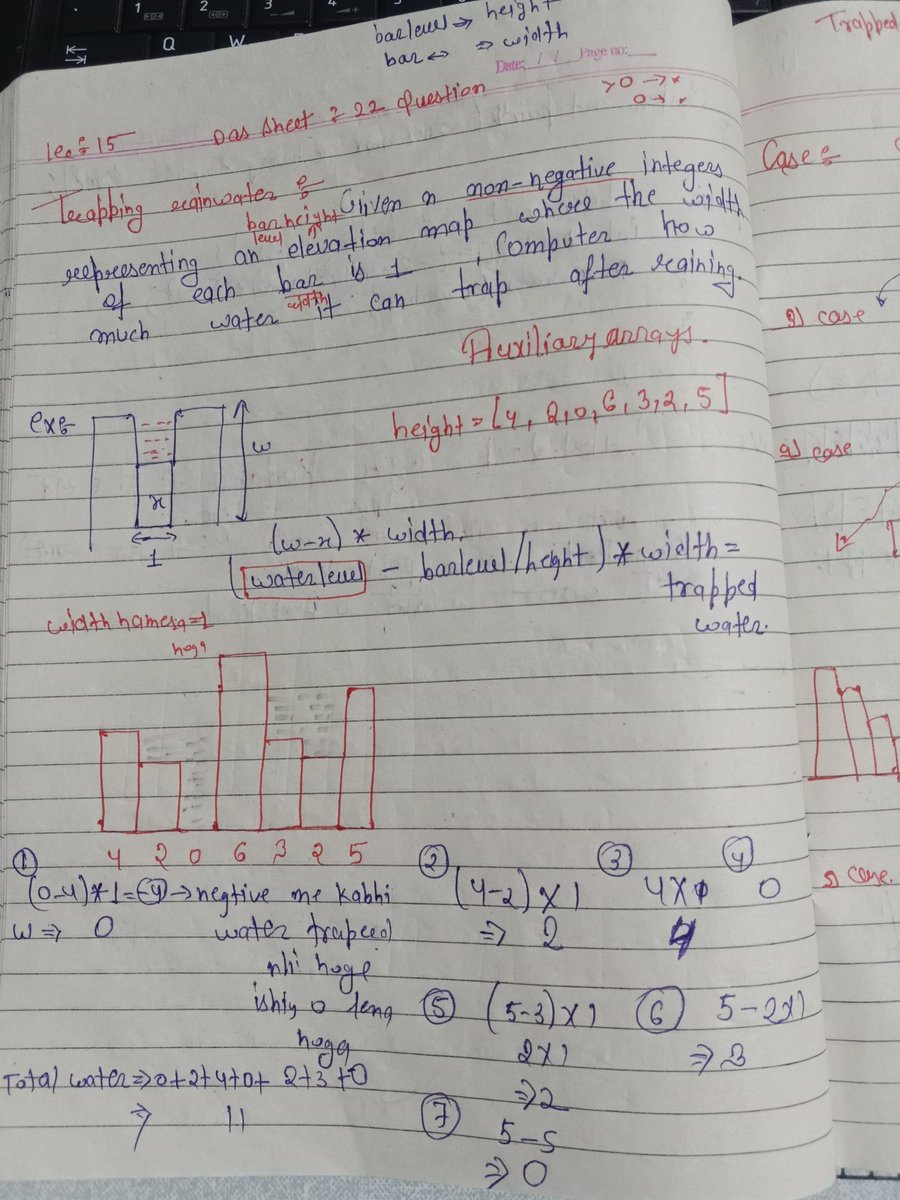 1
2
3
4
Q
W
barlevel => height
bar <-> => width
Date: / / Page no:
>0 -> x
0 ->
Trapped
lec: 15 Das Sheet : 22 Question
Trapping rainwater : Given n non-negative integers
barheight
level
representing an elevation map where the width
of each bar is 1 , Computer how
width
much water it can trap after raining.
Auxiliary arrays.
ex:
height = [4, 2, 0, 6, 3, 2, 5]
w
x
1
(w-x) * width.
(waterlevel - barlevel/height) * width =
trapped
water.
width hamesa = 1
hoga
4 2 0 6 3 2 5
① (0-4)*1 = -4 -> negtive me kabhi
w => 0 water trapeed
nhi hoge
ishly 0 lena
hoga
② (4-2) x 1
=> 2
③ 4x1
4
④ 0
⑤ (5-3) x 1
2x1
=> 2
⑥ 5-2x1
=> 3
⑦ 5-5
=> 0
Total water => 0+2+4+0+ 2+3+0
=> 11
Case :
3) case
4) case
5) case.